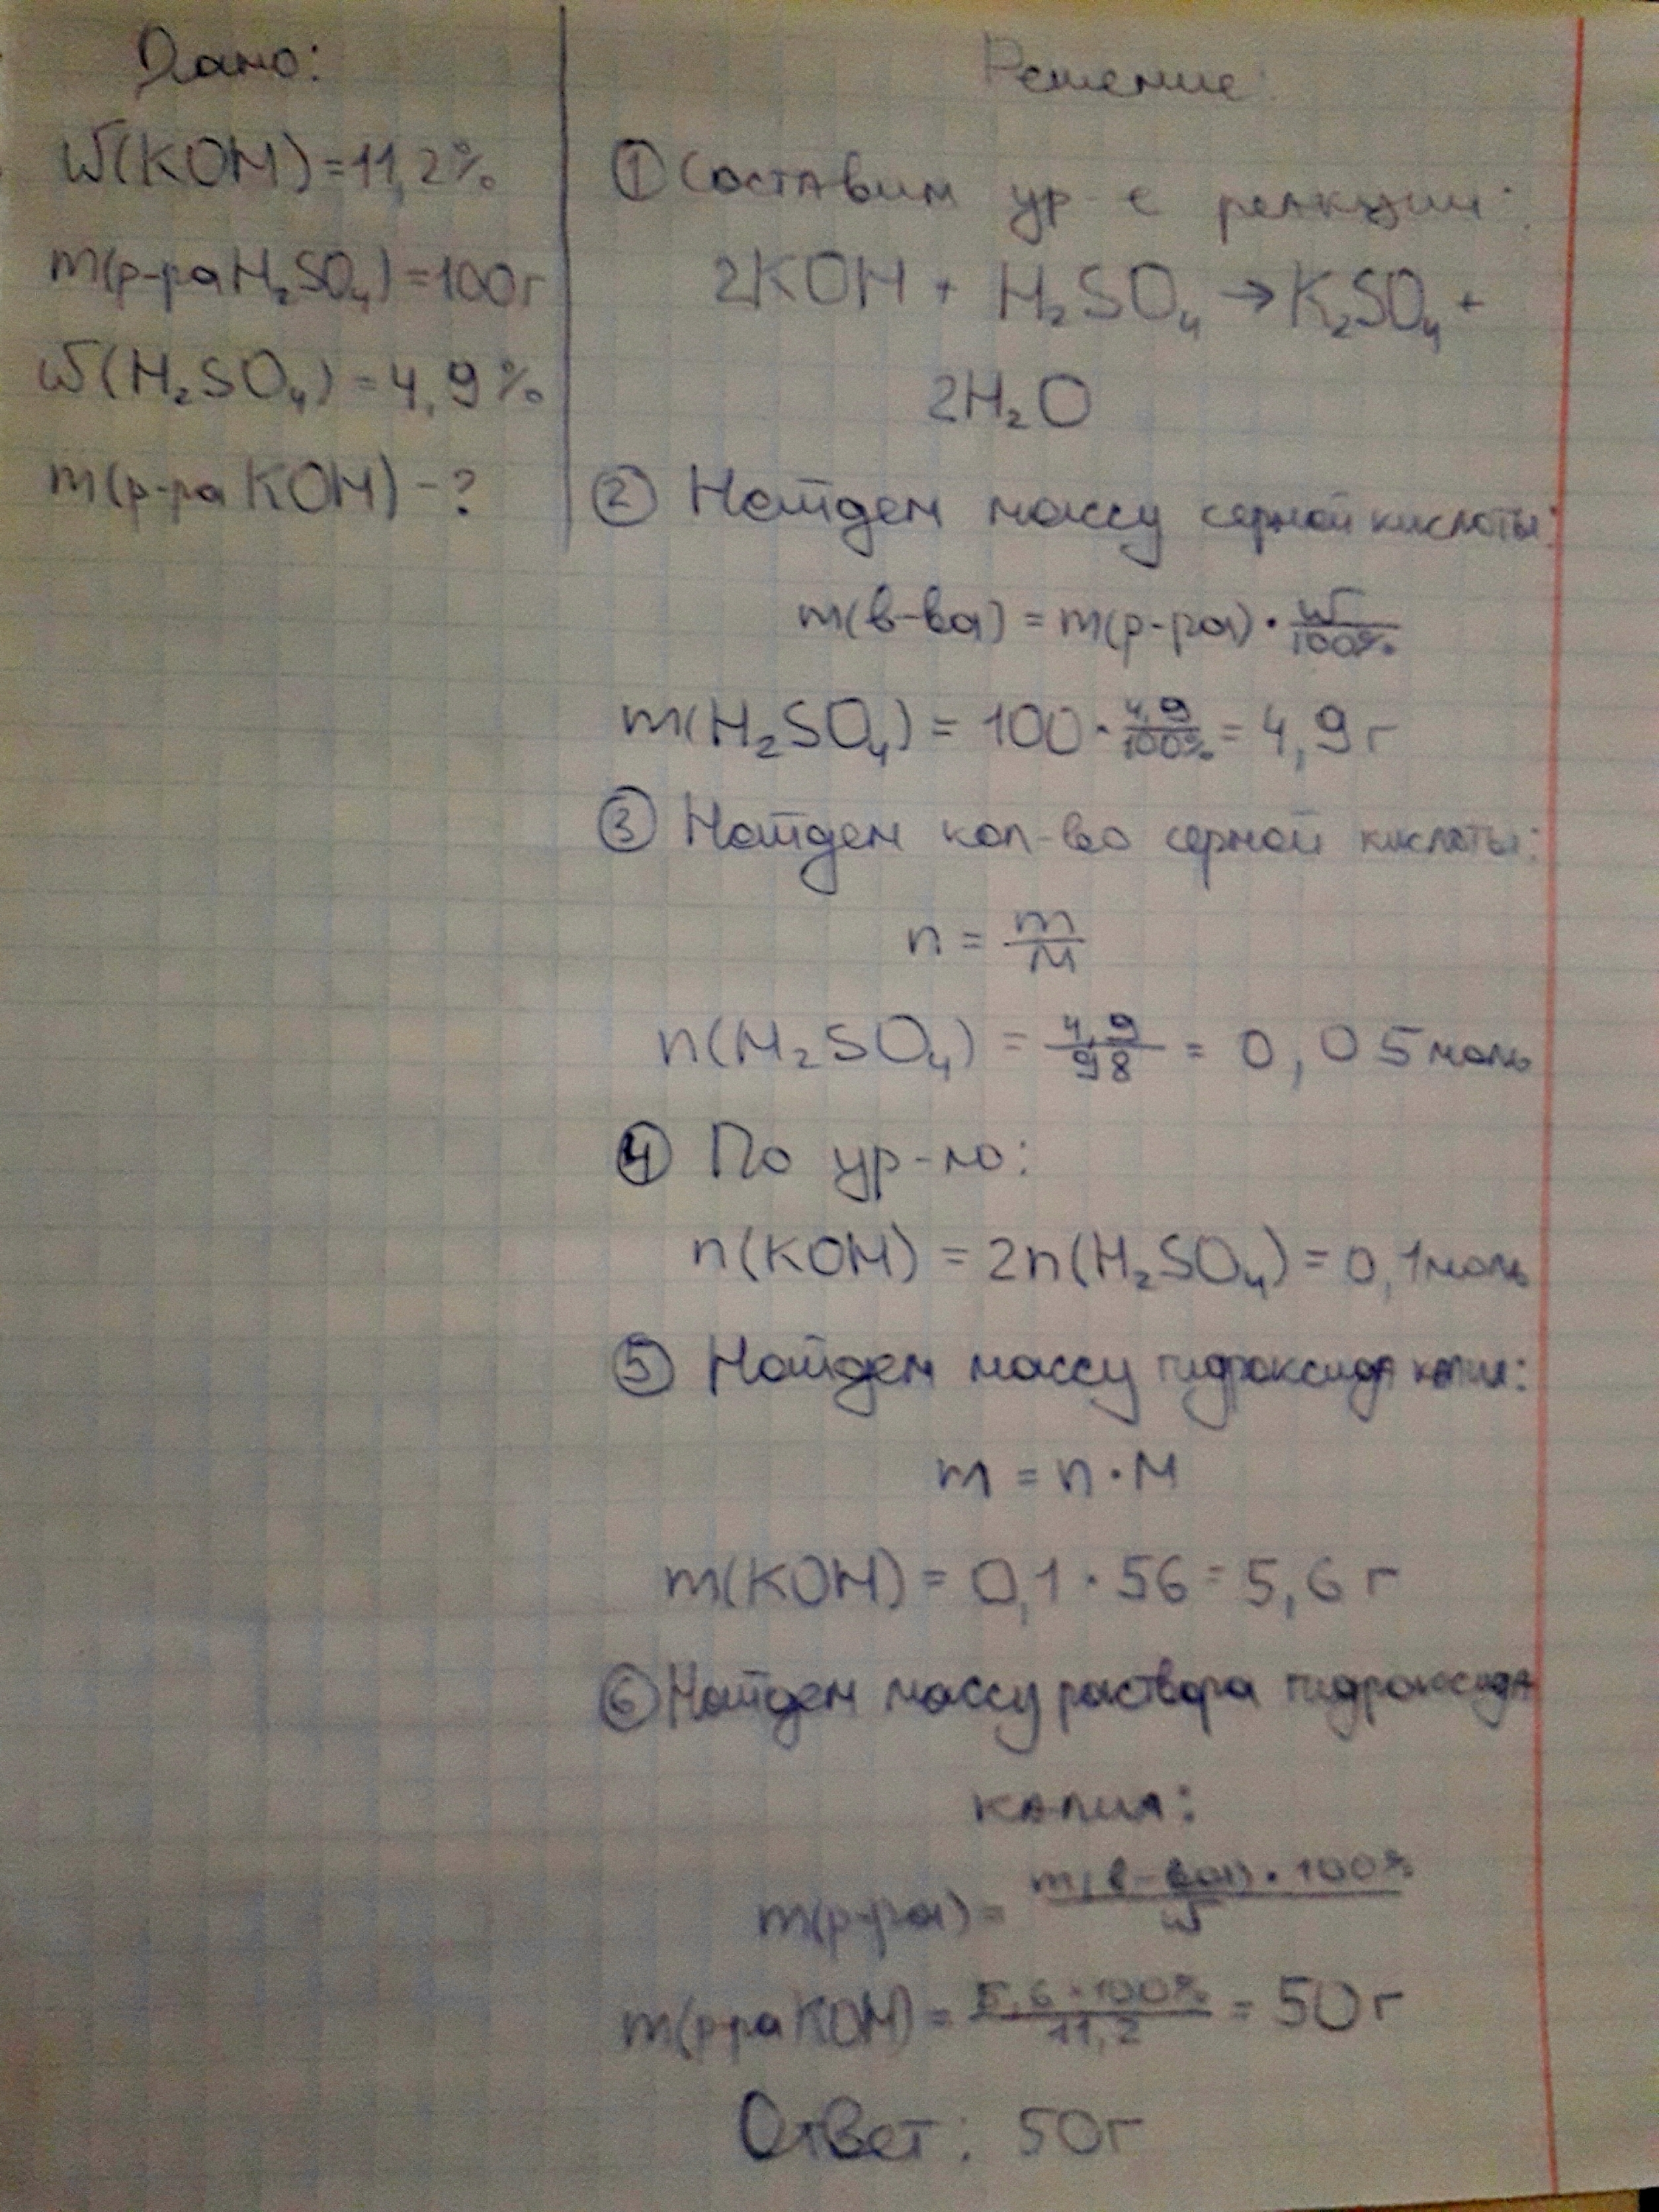 Дано:
W(KOH) = 11,2%
m(р-ра H₂SO₄) = 100г
W(H₂SO₄) = 4,9%
m(р-ра KOH) - ?
Решение:
① Составим ур-е реакции:
2KOH + H₂SO₄ → K₂SO₄ +
2H₂O
② Найдем массу серной кислоты:
m(в-ва) = m(р-ра) · W/100%
m(H₂SO₄) = 100 · 4,9/100% = 4,9 г
③ Найдем кол-во серной кислоты:
n = m/M
n(H₂SO₄) = 4,9/98 = 0,05 моль
④ По ур-ю:
n(KOH) = 2n(H₂SO₄) = 0,1 моль
⑤ Найдем массу гидроксида калия:
m = n · M
m(KOH) = 0,1 · 56 = 5,6 г
⑥ Найдем массу раствора гидроксида
калия:
m(р-ра) = m(в-ва) · 100%/W
m(р-ра KOH) = 5,6 · 100%/11,2 = 50 г
Ответ: 50г